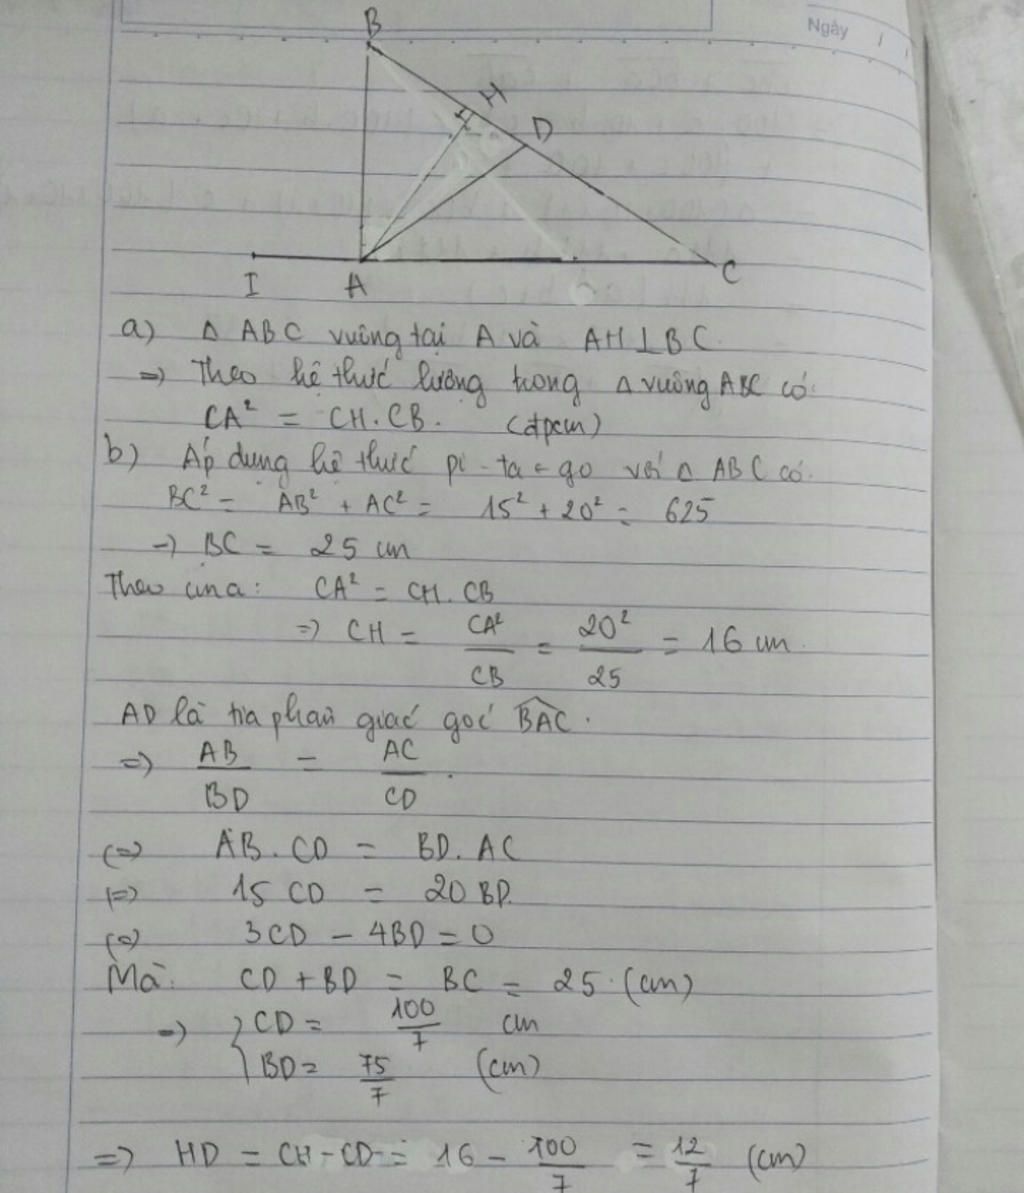 Ngày / /
B
H
D
I A C
a) Δ ABC vuông tại A và AH⊥BC.
=> Theo hệ thức lượng trong Δ vuông ABC có:
CA² = CH.CB. (đpcm)
b) Áp dụng hệ thức pi-ta-go với Δ ABC có.
BC² = AB² + AC² = 15² + 20² = 625
=> BC = 25 cm
Theo câu a: CA² = CH.CB
=> CH = CA²/CB = 20²/25 = 16 cm.
AD là tia phân giác góc BAC.
=> AB/BD = AC/CD.
(=> AB.CD = BD.AC
(=> 15 CD = 20 BD.
(=) 3CD - 4BD = 0
Mà: CD + BD = BC = 25.(cm)
=> { CD = 100/7 cm
BD = 75/7 (cm)
=> HD = CH-CD = 16 - 100/7 = 12/7 (cm)